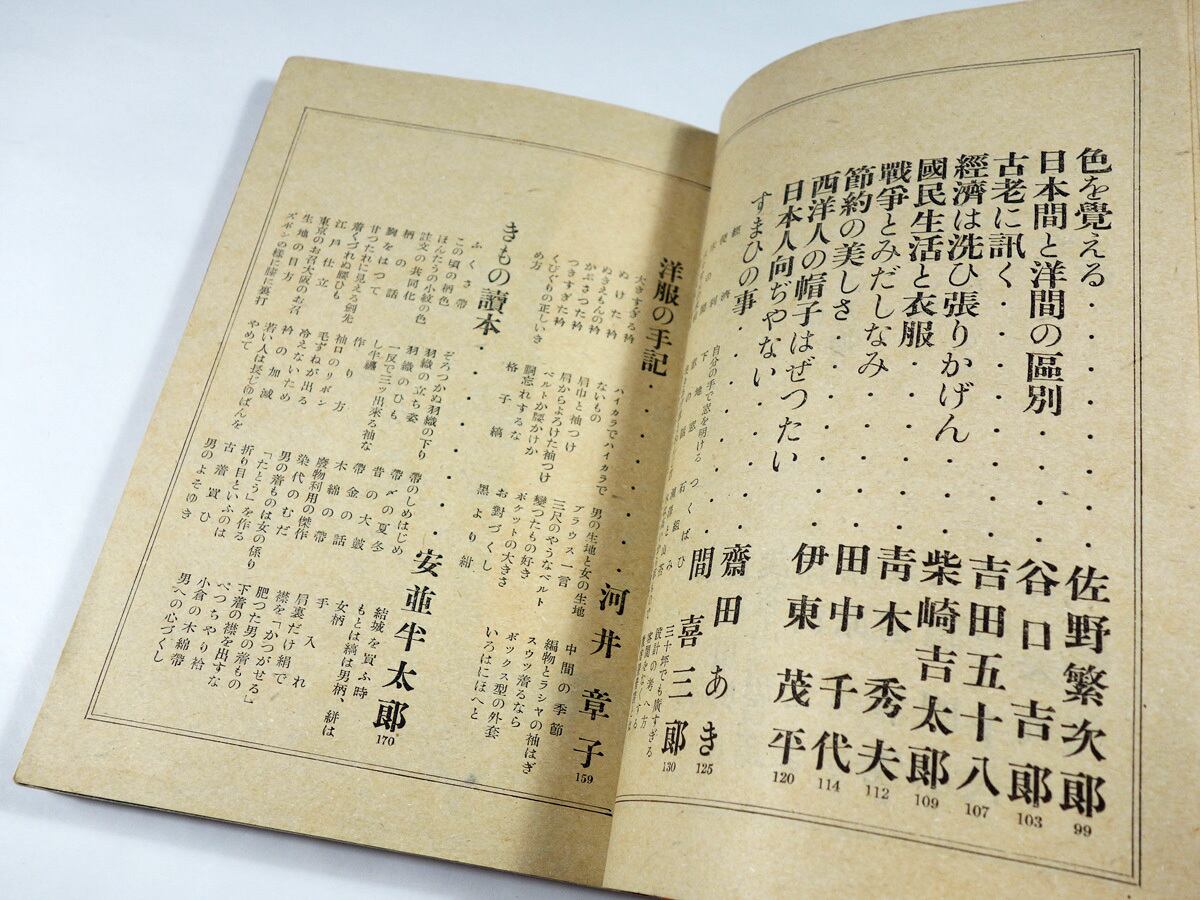 色を覚える・・・・・・佐野繁次郎 99
日本間と洋間の區別・・・・谷口吉郎 103
古老に訊く・・・・・・吉田五十八 107
經濟は洗ひ張りかげん・・・柴崎吉太郎 109
國民生活と衣服・・・・・靑木秀夫 112
戰爭とみだしなみ・・・・田中千代 114
節約の美しさ・・・・・伊東茂平 120
西洋人の帽子はぜつたい
日本人向ぢやない・・・齋田あき 125
すまひの事・・・・・・間喜三郎 130
自分の手で窓を明ける
下地窓
つくばひ
石組み
三十坪でも廣すぎる
設計の考へ方
洋服の手記・・・・・・河井章子 159
大きすぎる衿
ぬけた衿
ぬきえもんの衿
かぶさつた衿
つきすぎた衿
くびぐりの正しいきめ方
ハイカラでハイカラでないもの
肩巾と袖つけ
肩からよろけた袖つけ
ベルトか腰かけか
胴忘れするな
格子縞
男の生地と女の生地
ブラウス一言
三尺のやうなベルト
變つたもの好き
ポケットの大きさ
お對づくし
黑より紺
中間の季節
編物とラシャの袖はぎ
スウツ着るなら
ボックス型の外套
いろはにほへと
きもの讀本・・・・・・安並半太郎 170
ふくさ帶
この頃の柄色
ほんたうの小紋の色
註文の共同化
柄の話
胸をはつて
甘つたれに見える劍先
着くづれぬ腰ひも
江戸仕立
東京のお召大阪のお召
生地の目方
ズボンの樣に膝に裏打
ぞろつかぬ羽織の下り
羽織の立ち姿
羽織のひも
一反で三ッ出來る袖なし半纏
作り方
袖口のリボン
毛ずねが出る
冷えないため
衿の加減
若い人は長じゆばんをやめて
帶のしめはじめ
帶〆の夏冬
昔の大皷
帶金の話
木綿の帶
廢物利用の傑作
染代のむだ
男の着ものは女の係り
「たとう」を作る
折り目といふのは
古着買ひ
男のよそゆき
結城を買ふ時
もとは縞は男柄、絣は女柄
手入れ
肩裏だけ絹で
襟を「かつがせる」
肥つた男の着もの
下着の襟を出すな
べつちやり袴
小倉の木綿帶
男への心づくし